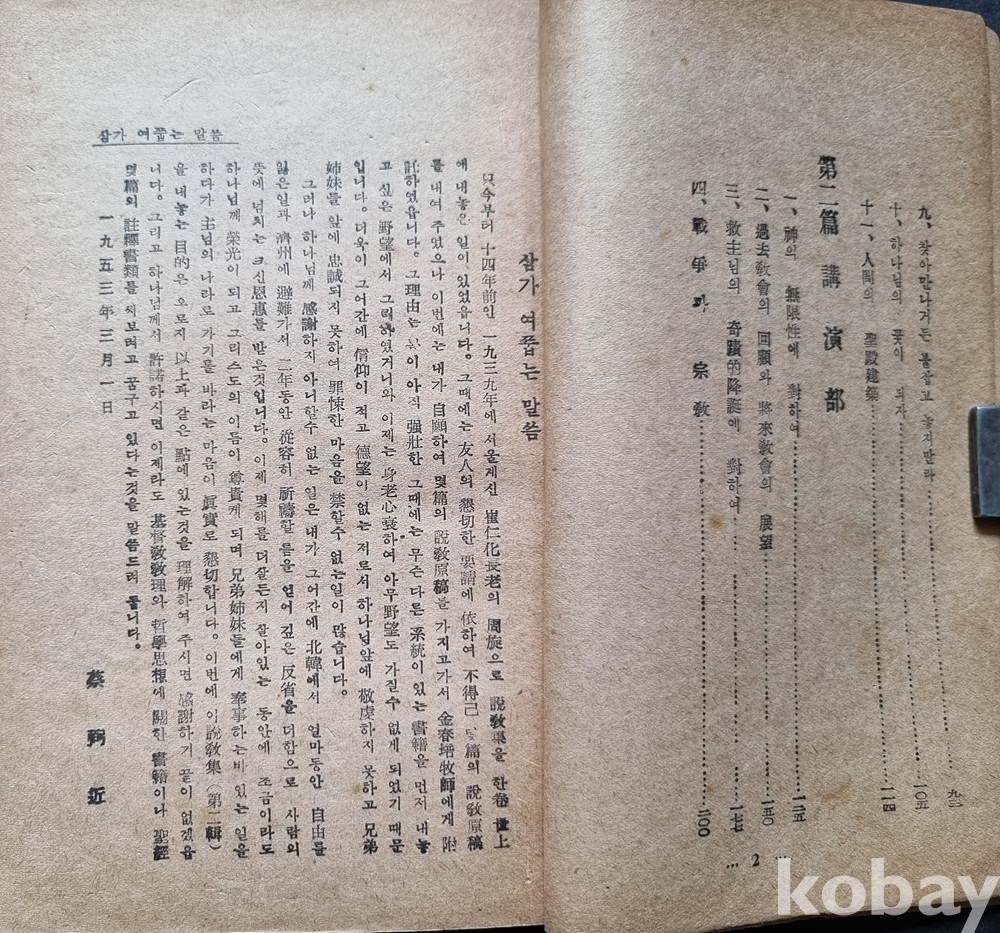 九、찾아만나거든 붙잡고 놓지말라 ………… 九二
十、하나님의 꽃이 되자 ………… 一〇五
十一、人間의 聖殿建築 ………… 一一四
第二篇 講演部
一、神의 無限性에 對하여 ………… 一三五
二、過去敎會의 回顧와 將來敎會의 展望 ………… 一五〇
三、救主님의 奇蹟的降誕에 對하여 ………… 一七七
四、戰爭과 宗敎 ………… 二〇〇
… 2 …
삼가 여쭙는 말씀
삼가 여쭙는 말씀
只今부터 十四年前인 一九三九年에 서울계신 崔仁化長老의 周旋으로 說敎集을 한卷 世上
에 내놓은 일이 있었읍니다。그때에는 友人의 懇切한 要請에 依하여 不得已 몇篇의 說敎原稿
를 내여 주었으나 이번에는 내가 自願하여 몇篇의 說敎原稿를 가지고가서 金春培牧師에게 附
託하였읍니다。그理由는 몸이아직 强壯한 그때에는 무슨 다른 系統이 있는 書籍을 먼저 내놓
고 싶은 野望에서 그리하였거니와 이제는 身老心衰하여 아무野望도 가질수 없게 되었기 때문
입니다。더욱이 그어간에 信仰이 적고 德望이 없는 저로서 하나님앞에 敬虔하지 못하고 兄弟
姉妹를 앞에 忠誠되지 못하여 罪悚한 마음을 禁할수 없는일이 많습니다。
그러나 하나님께 感謝하지아니할수 없는 일은 내가 그어간에 北韓에서 얼마동안 自由를
잃은일과 濟州에 避難가서 二年동안 從容히 祈禱할 틈을 얻어 깊은 反省을 더함으로 사람의
뜻에 넘치는 크신恩惠를 받은것입니다。이제 몇해를 더살든지 살아있는 동안에 조금이라도
하나님께 榮光이 되고 그리스도의 이름이 尊貴케 되며 兄弟姉妹들에게 奉事하는바 있는 일을
하다가 主님의 나라로 가기를 바라는 마음이 眞實로 懇切합니다。이번에 이說敎集(第二輯)
을 내놓는 目的은 오로지 以上과 같은 點에 있는것을 理解하여 주시면 感謝하기 끝이 없겠읍
니다。그리고 하나님께서 許諾하시면 이제라도 基督敎敎理와 哲學思想에 關한 書籍이나 聖經
몇篇의 註釋書類를 써보려고 꿈구고 있다는것을 말씀드려 둡니다。
一九五三年三月一日
蔡弼近
kobay